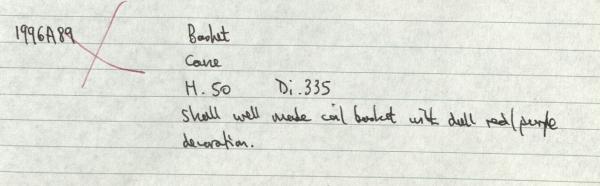 1996A89 Basket
Cane
H. 50 Di. 335
Small well made coil basket with dull red/purple
decoration.